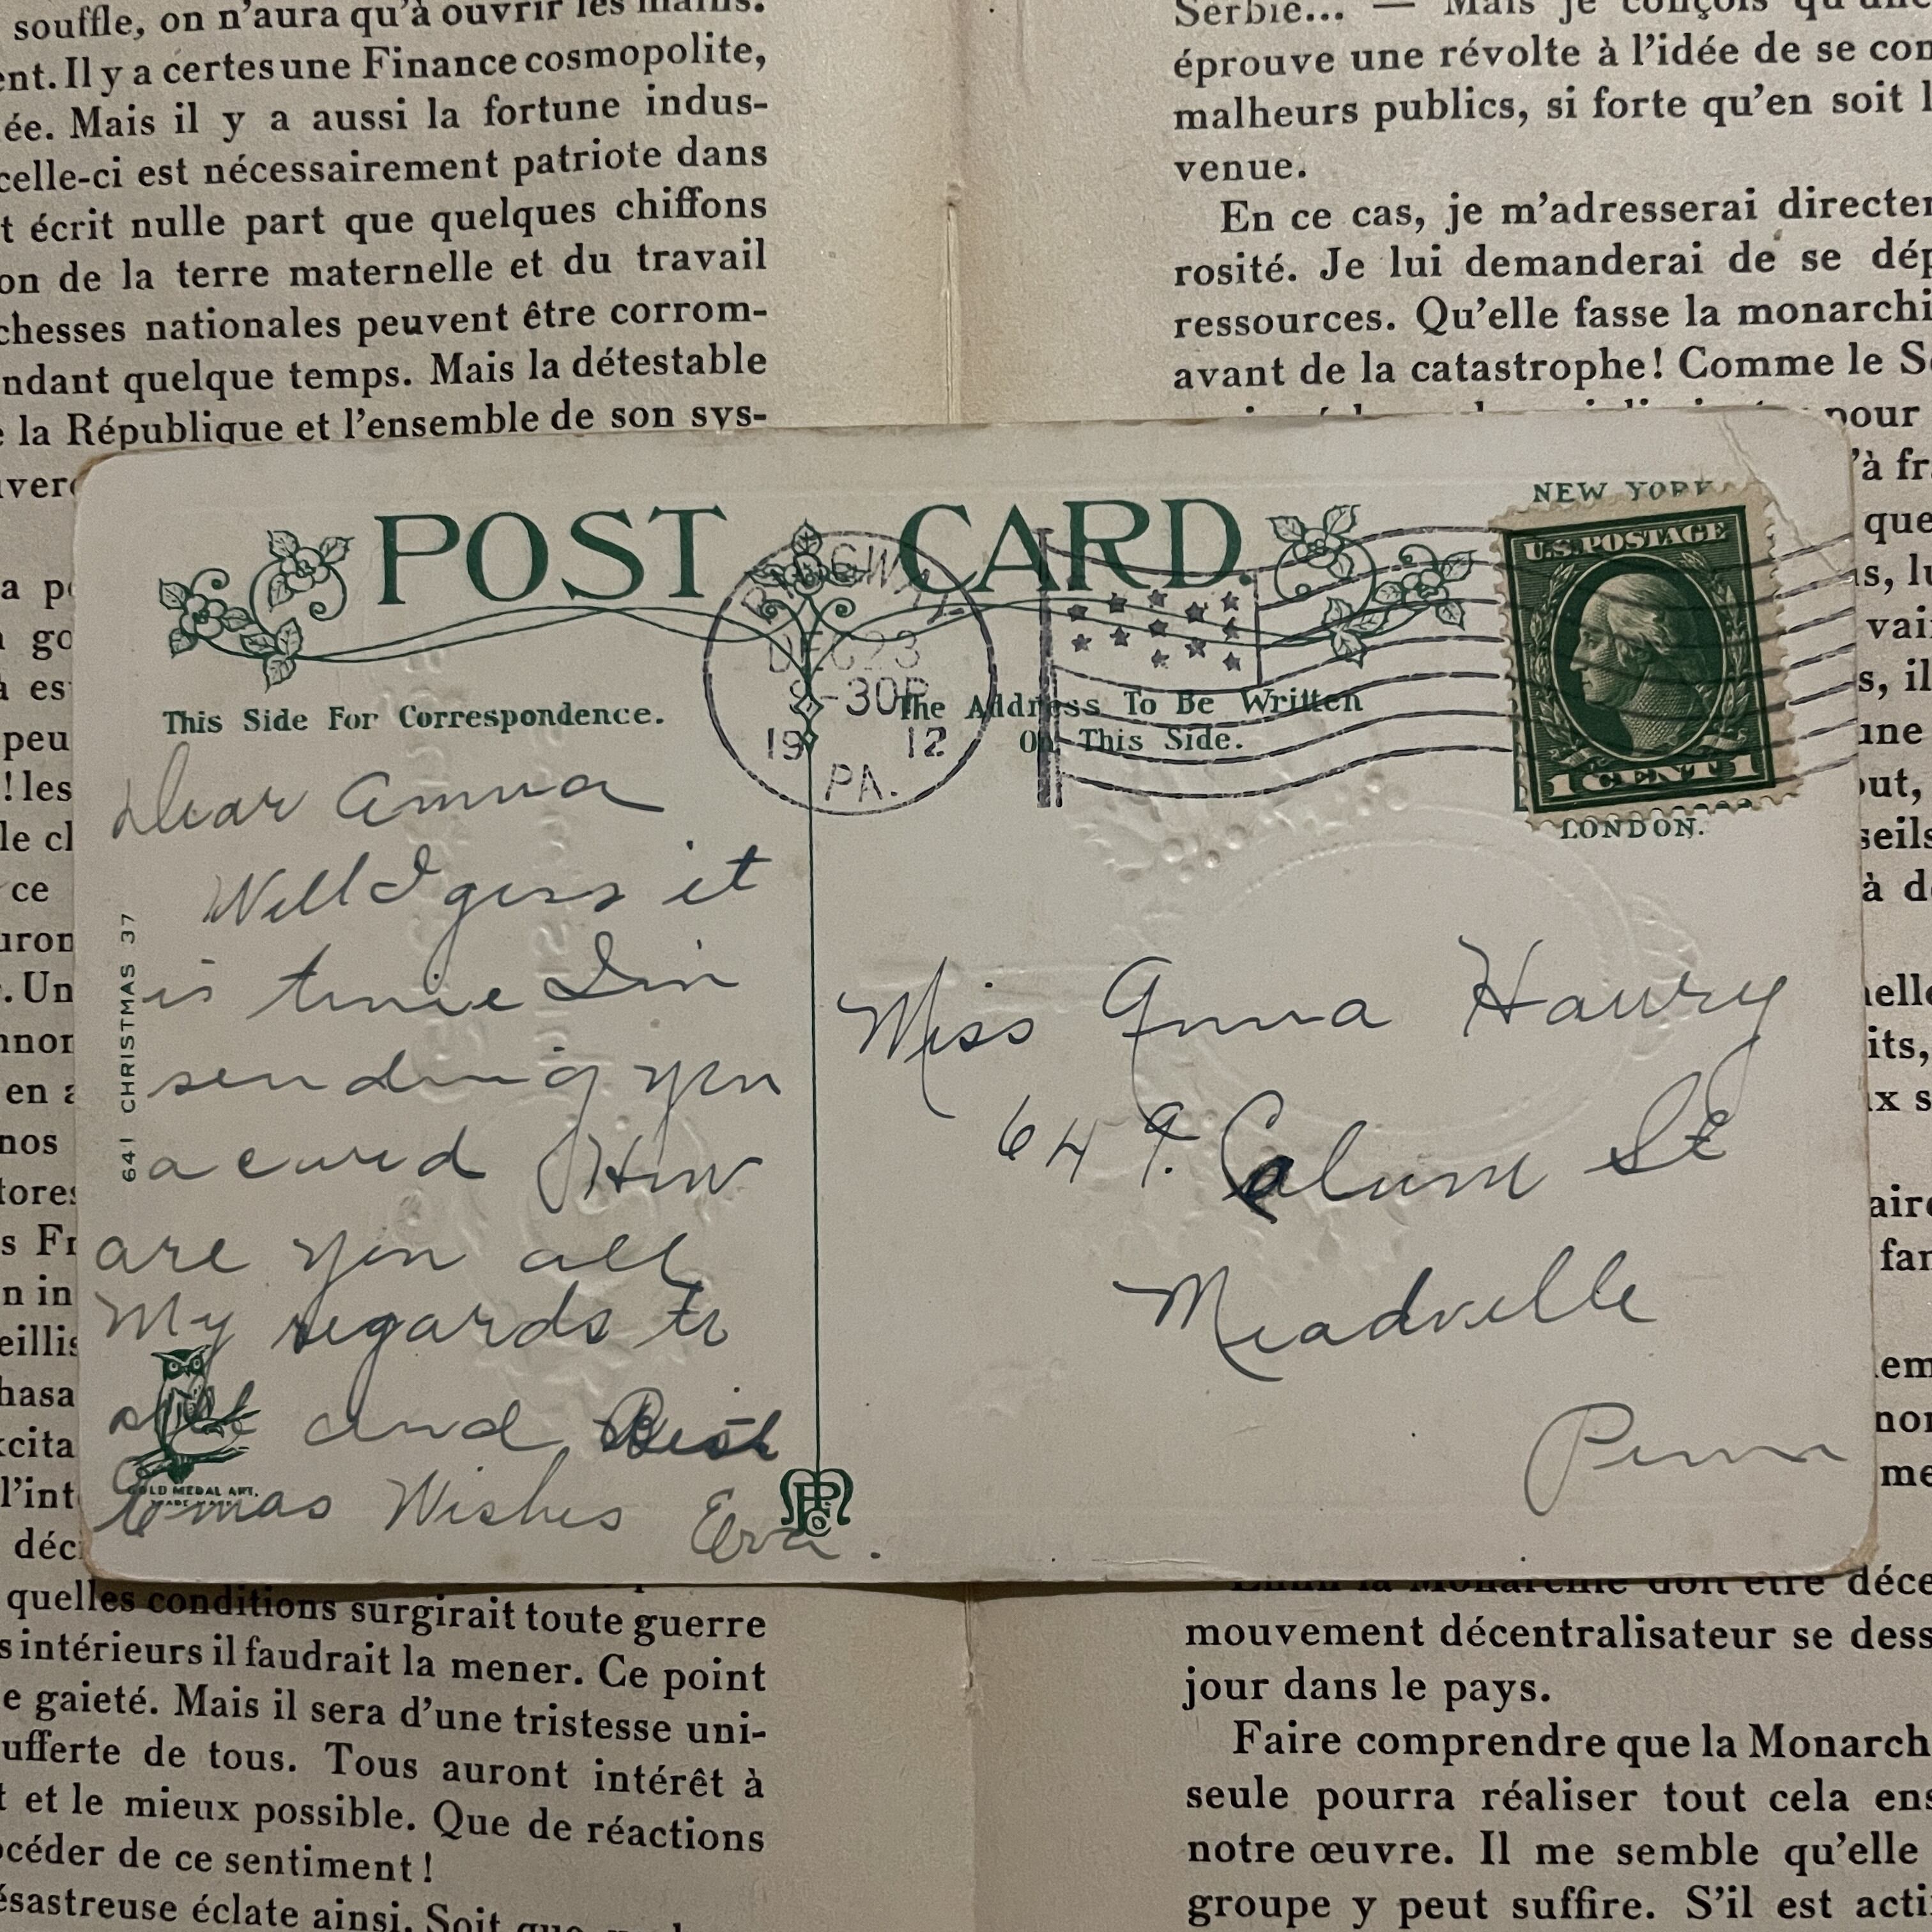 souffle, on n'aura qu'à ouvrir les mains.
ent. Il y a certes une Finance cosmopolite,
ée. Mais il y a aussi la fortune indus-
celle-ci est nécessairement patriote dans
t écrit nulle part que quelques chiffons
on de la terre maternelle et du travail
chesses nationales peuvent être corrom-
ndant quelque temps. Mais la détestable
e la République et l'ensemble de son sys-
Serbie... — Mais je conçois qu'une
éprouve une révolte à l'idée de se con
malheurs publics, si forte qu'en soit l
venue.
En ce cas, je m'adresserai directem
rosité. Je lui demanderai de se dép
ressources. Qu'elle fasse la monarchi
avant de la catastrophe! Comme le S
pour
'à fr
que
s, lu
vai
s, il
une
out,
seils
à d
POST CARD.
NEW YORK
U.S. POSTAGE
1 CENT 1
LONDON.
RIDGWAY
DEC 23
8-30P
19 12
PA.
This Side For Correspondence.
The Address To Be Written
On This Side.
641 CHRISTMAS 37
Dear Anna
Well I gess it
is time I'm
sending you
a card How
are you all
My regards to
all and Best
Xmas Wishes Eva.
GOLD MEDAL ART.
TRADE MARK
Miss Anna Hawry
649. Calum St
Meadville
Penn
quelles conditions surgirait toute guerre
s intérieurs il faudrait la mener. Ce point
e gaieté. Mais il sera d'une tristesse uni-
ufferte de tous. Tous auront intérêt à
t et le mieux possible. Que de réactions
océder de ce sentiment!
ésastreuse éclate ainsi. Soit que
Enfin la Monarchie doit être déce
mouvement décentralisateur se dess
jour dans le pays.
Faire comprendre que la Monarch
seule pourra réaliser tout cela ens
notre œuvre. Il me semble qu'elle
groupe y peut suffire. S'il est acti